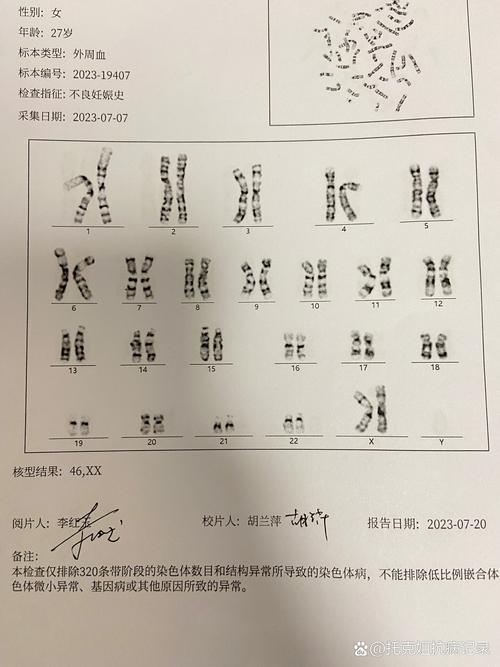 性别：女
年龄：27岁
标本类型：外周血
标本编号：2023-19407
检查指征：不良妊娠史
采集日期：2023-07-07
1 2 3 4 5
6 7 8 9 10 11 12
13 14 15 16 17 18
19 20 21 22 X Y
核型结果：46,XX
阅片人：李红玉 校片人：胡兰萍 报告日期：2023-07-20
备注：
本检查仅排除320条带阶段的染色体数目和结构异常所导致的染色体病，不能排除低比例嵌合体
色体微小异常、基因病或其他原因所致的异常。
百家号/托克妇抗病记录